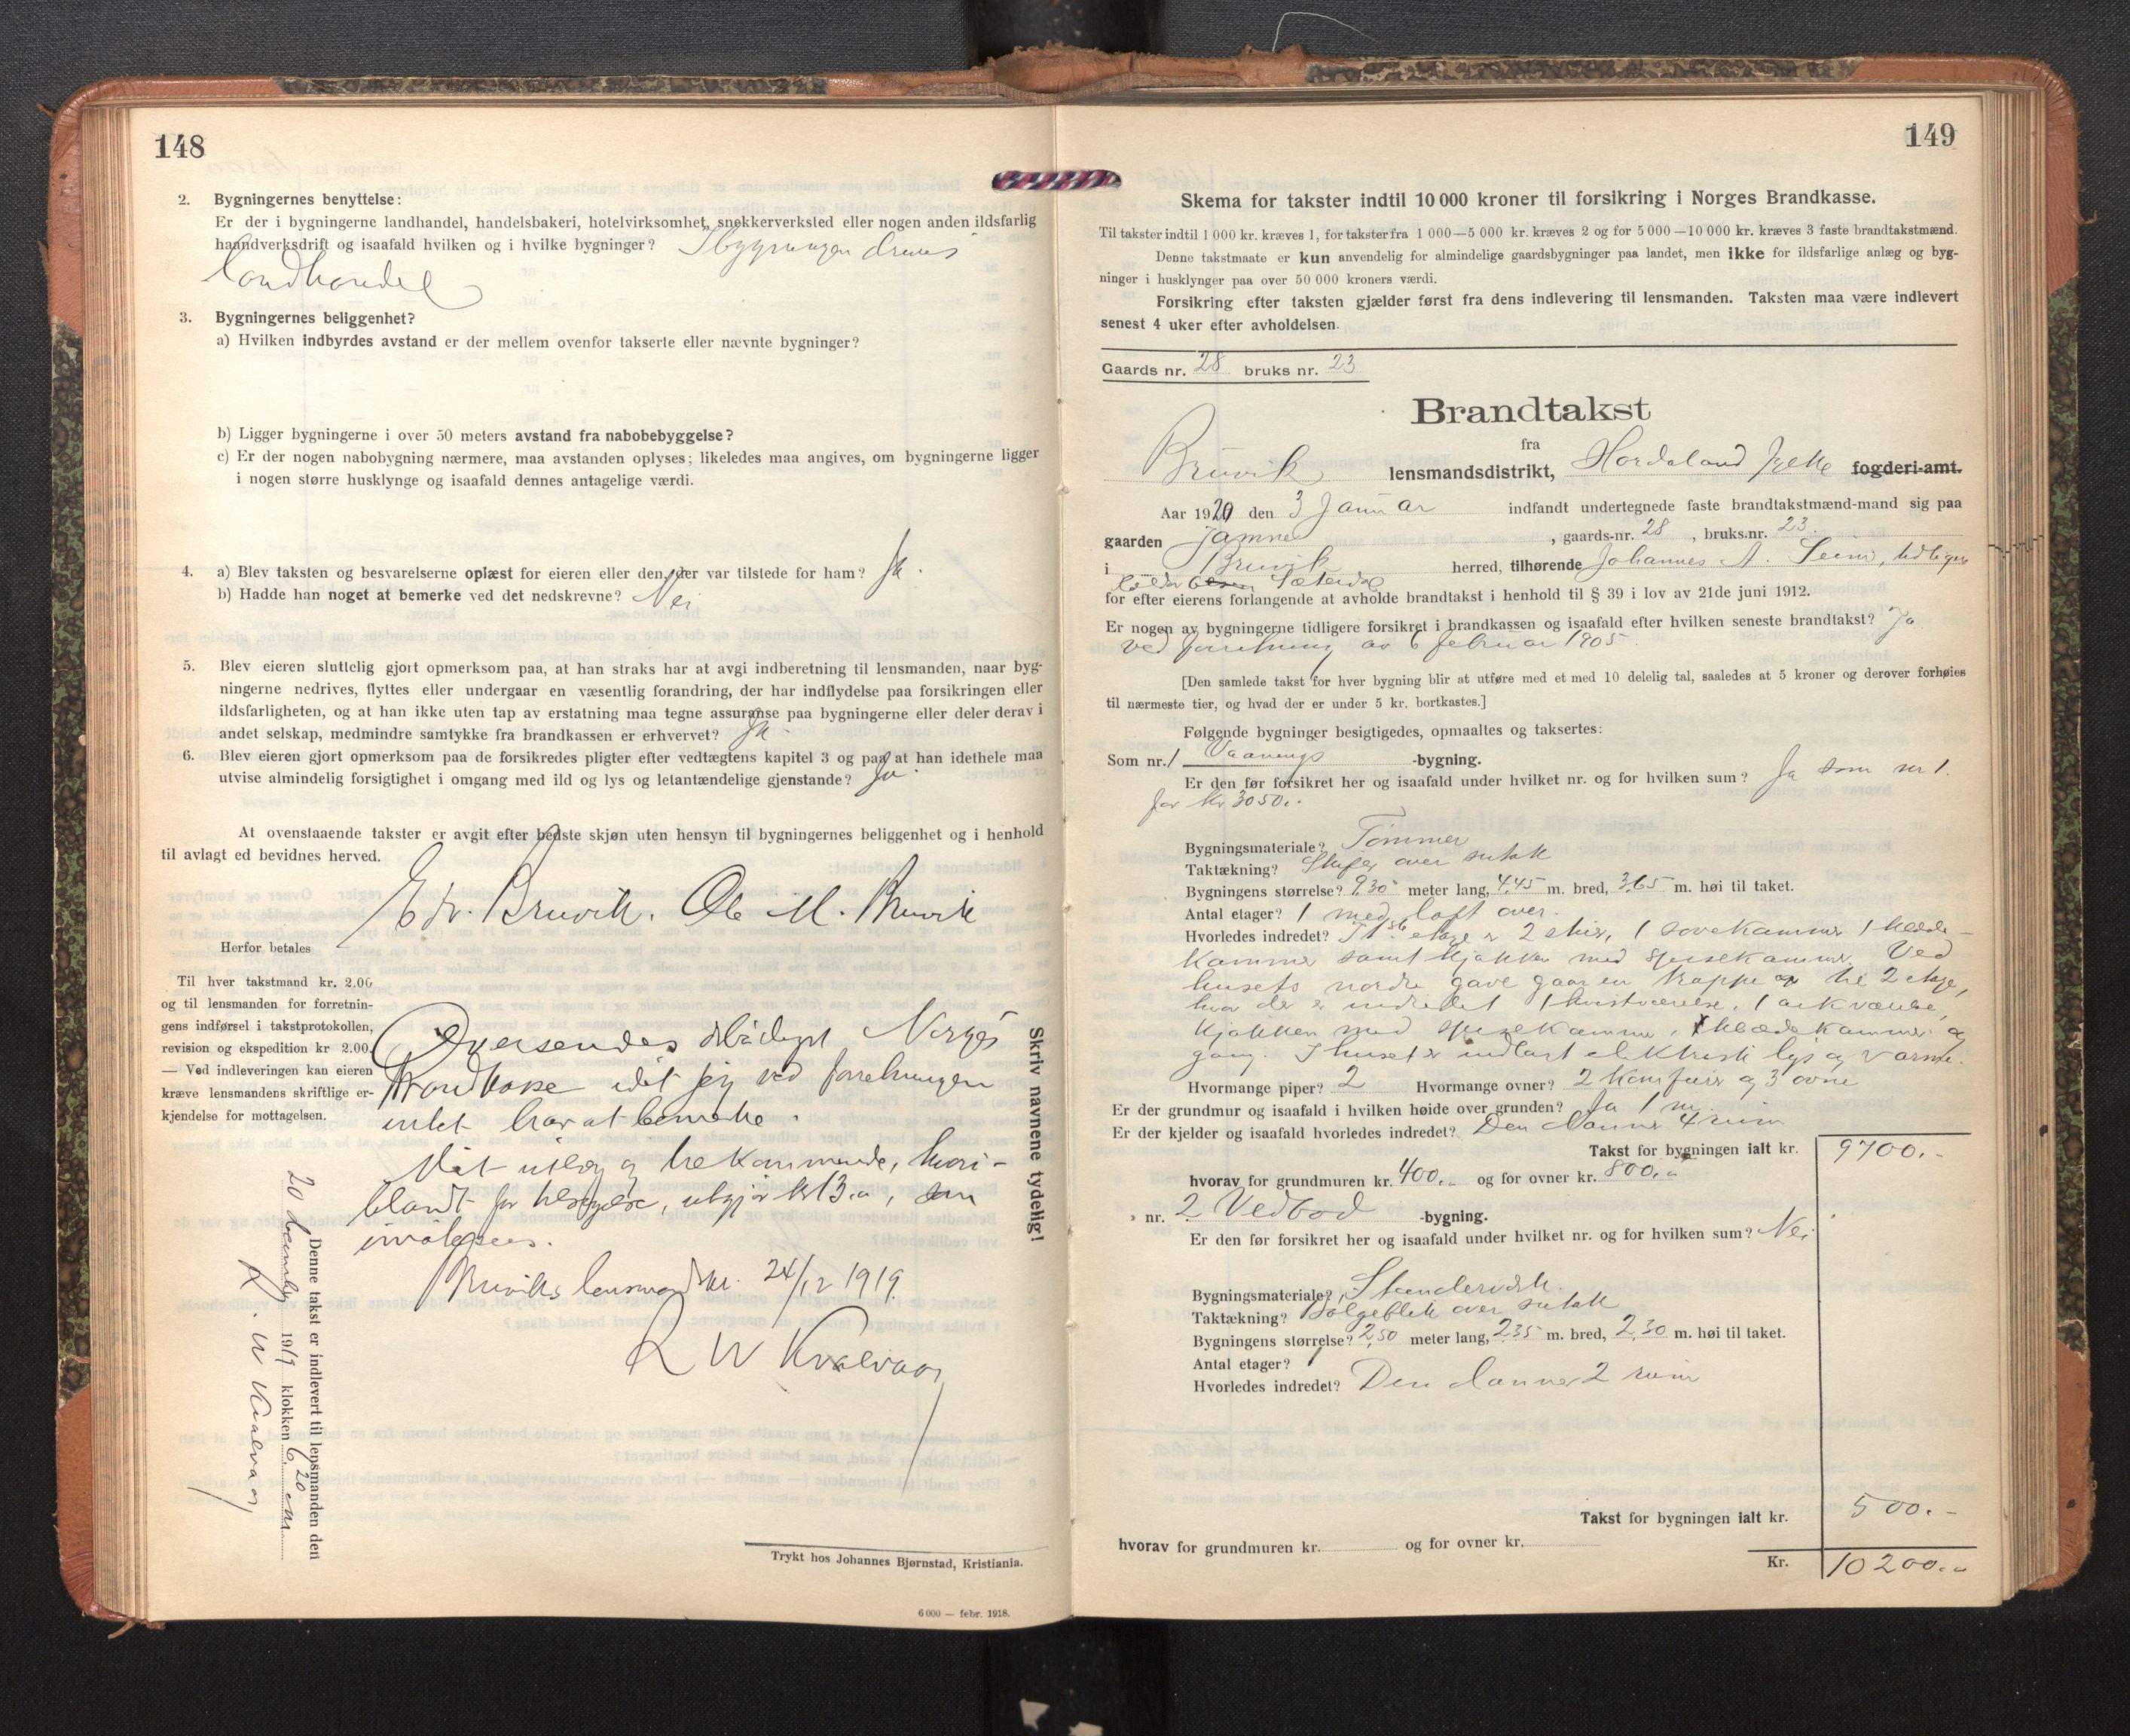 148
2. Bygningernes benyttelse:
Er der i bygningerne landhandel, handelsbakeri, hotelvirksomhet, snekkerverksted eller nogen anden ildsfarlig
haandverksdrift og isaafald hvilken og i hvilke bygninger? I bygningen drives
landhandel
3. Bygningernes beliggenhet?
a) Hvilken indbyrdes avstand er der mellem ovenfor takserte eller nævnte bygninger?
b) Ligger bygningerne i over 50 meters avstand fra nabobebyggelse?
c) Er der nogen nabobygning nærmere, maa avstanden oplyses; likeledes maa angives, om bygningerne ligger
i nogen større husklynge og isaafald dennes antagelige værdi.
4. a) Blev taksten og besvarelserne oplæst for eieren eller den, der var tilstede for ham? Ja.
b) Hadde han noget at bemerke ved det nedskrevne? Nei
5. Blev eieren sluttelig gjort opmerksom paa, at han straks har at avgi indberetning til lensmanden, naar byg-
ningerne nedrives, flyttes eller undergaar en væsentlig forandring, der har indflydelse paa forsikringen eller
ildsfarligheten, og at han ikke uten tap av erstatning maa tegne assuranse paa bygningerne eller deler derav i
andet selskap, medmindre samtykke fra brandkassen er erhvervet? Ja.
6. Blev eieren gjort opmerksom paa de forsikredes pligter efter vedtægtens kapitel 3 og paa at han idethele maa
utvise almindelig forsigtighet i omgang med ild og lys og letantændelige gjenstande? Ja.
At ovenstaaende takster er avgit efter bedste skjøn uten hensyn til bygningernes beliggenhet og i henhold
til avlagt ed bevidnes herved.
Edv. Bruvik. Ole M. Bruvik
Herfor betales
Til hver takstmand kr. 2.00
og til lensmanden for forretnin-
gens indførsel i takstprotokollen,
revision og ekspedition kr 2.00.
— Ved indleveringen kan eieren
kræve lensmandens skriftlige er-
kjendelse for mottagelsen.
Oversendes Norges
Brandkasse idet jeg ved forretningen
intet har at bemerke.
Mit utlæg og tilkommende, hvori-
blandt for utgjør kr 13.00, som
Bruviks lensmandskt. 24/12 1919.
R W Kvalvaag
Skriv navnene tydelig!
Denne takst er indlevert til lensmanden den
20 desember 1919 klokken 6,20 em
R. W Kvalvaag
Trykt hos Johannes Bjørnstad, Kristiania.
6 000 — febr. 1918.
149
Skema for takster indtil 10 000 kroner til forsikring i Norges Brandkasse.
Til takster indtil 1 000 kr. kræves 1, for takster fra 1 000—5 000 kr. kræves 2 og for 5 000—10 000 kr. kræves 3 faste brandtakstmænd.
Denne takstmaate er kun anvendelig for almindelige gaardsbygninger paa landet, men ikke for ildsfarlige anlæg og byg-
ninger i husklynger paa over 50 000 kroners værdi.
Forsikring efter taksten gjælder først fra dens indlevering til lensmanden. Taksten maa være indlevert
senest 4 uker efter avholdelsen.
Gaards nr. 28 bruks nr. 23
Brandtakst
fra
Bruvik lensmandsdistrikt, Hordaland fylke fogderi-amt.
Aar 1920 den 3 Januar indfandt undertegnede faste brandtakstmænd-mand sig paa
gaarden Jamne, gaards-nr. 28, bruks.nr. 23
i Bruvik herred, tilhørende Johannes A. Seim, tidligere
for efter eierens forlangende at avholde brandtakst i henhold til § 39 i lov av 21de juni 1912.
Er nogen av bygningerne tidligere forsikret i brandkassen og isaafald efter hvilken seneste brandtakst? Ja
ved forretning av 6 februar 1905.
[Den samlede takst for hver bygning blir at utføre med et med 10 delelig tal, saaledes at 5 kroner og derover forhøies
til nærmeste tier, og hvad der er under 5 kr. bortkastes.]
Følgende bygninger besigtigedes, opmaaltes og taksertes:
Som nr. 1 Vaanings -bygning.
Er den før forsikret her og isaafald under hvilket nr. og for hvilken sum? Ja som nr 1.
for kr 3050..
Bygningsmateriale? Tømmer
Taktækning? Skifer over sutak
Bygningens størrelse? 9.30 meter lang, 4.45 m. bred, 3.65 m. høi til taket.
Antal etager? 1 med loft over.
Hvorledes indredet? I 1ste etage er 2 stuer, 1 sovekammer 1 klæde-
kammer samt kjøkken med spisekammer. Ved
husets nordre gavl gaar en trappe op til 2 etage,
hvor der er indredet 1 kvistværelse, 1 arkværelse,
kjøkken med spisekammer, klædekammer og
gang. I huset er indlagt elektrisk lys og varme.
Hvormange piper? 2 Hvormange ovner? 2 komfurer og 3 ovne
Er der grundmur og isaafald i hvilken høide over grunden? Ja 1 m.
Er der kjelder og isaafald hvorledes indredet? Den danner 4 rum
Takst for bygningen ialt kr. 9700.-
hvorav for grundmuren kr. 400.. og for ovner kr. 800..
» nr. 2 Vedbod -bygning.
Er den før forsikret her og isaafald under hvilket nr. og for hvilken sum? Nei
Bygningsmateriale? Standerverk.
Taktækning? Bølgeblik over sutak
Bygningens størrelse? 2,50 meter lang, 2.35 m. bred, 2,30 m. høi til taket.
Antal etager? 1
Hvorledes indredet? Den danner 2 rum
Takst for bygningen ialt kr. 500.-
hvorav for grundmuren kr. og for ovner kr.
Kr. 10200..